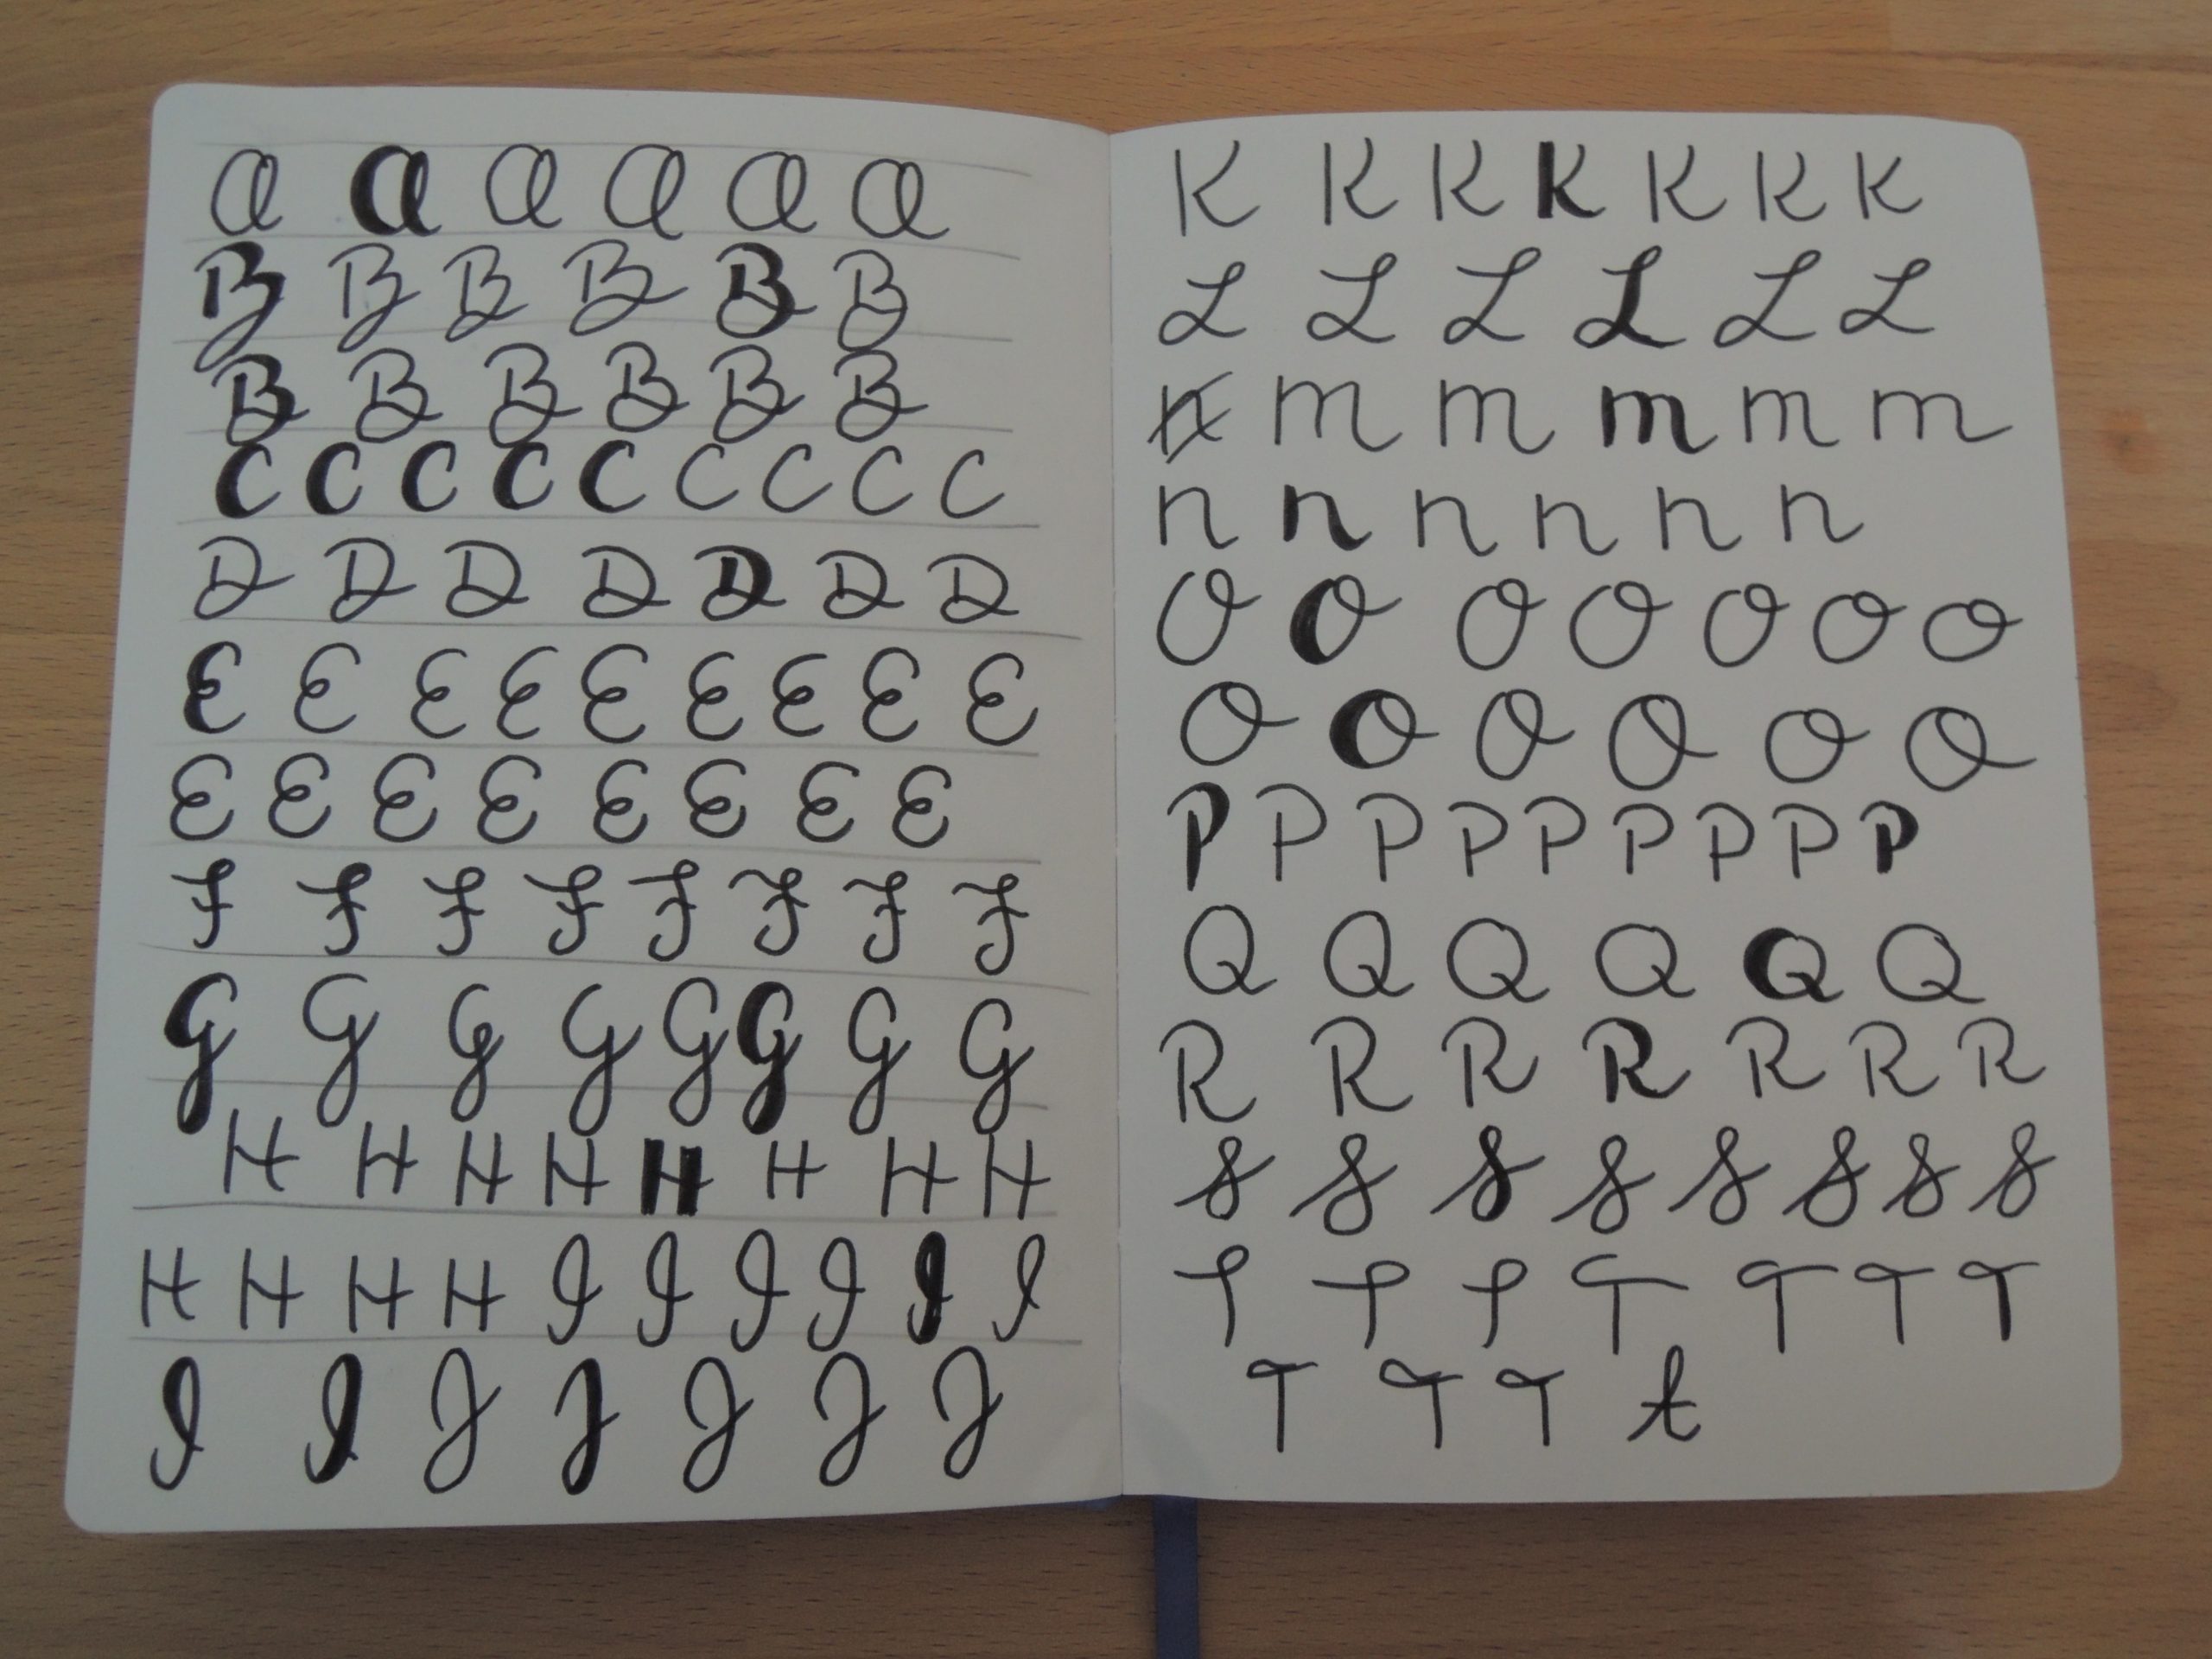 a a a a a a
B B B B B B
B B B B B B
C C C C C C C C C
D D D D D D D
E E E E E E E E E
E E E E E E E E
F F F F F F F F
G G G G G G G G
H H H H H H H H
H H H H I I I I I I
I I J J J J J
K K K K K K K
L L L L L L
m m m m m
n n n n n n
O O O O O O O
O O O O O O
P P P P P P P P P
Q Q Q Q Q Q
R R R R R R R
S S S S S S S S
T T T T T T T
T T T t